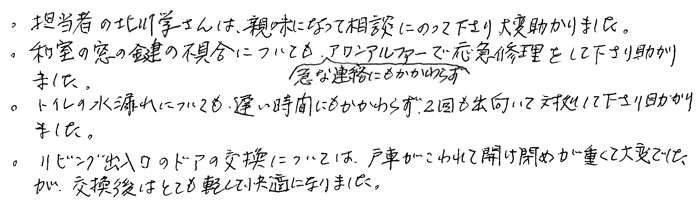 。担当者の北川学さんは、親味になって相談にのって下さり大変助かりました。
。和室の窓の鍵の不具合についても、アロンアルファーで応急修理をして下さり助かり
急な連絡にもかかわらず
ました。
。トイレの水漏れについても、遅い時間にもかかわらず、2回も出向いて対処して下さり助かり
ました。
。リビング出入口のドアの交換については、戸車がこわれて開け閉めが重くて大変でした
が、交換後はとても軽くて快適になりました。